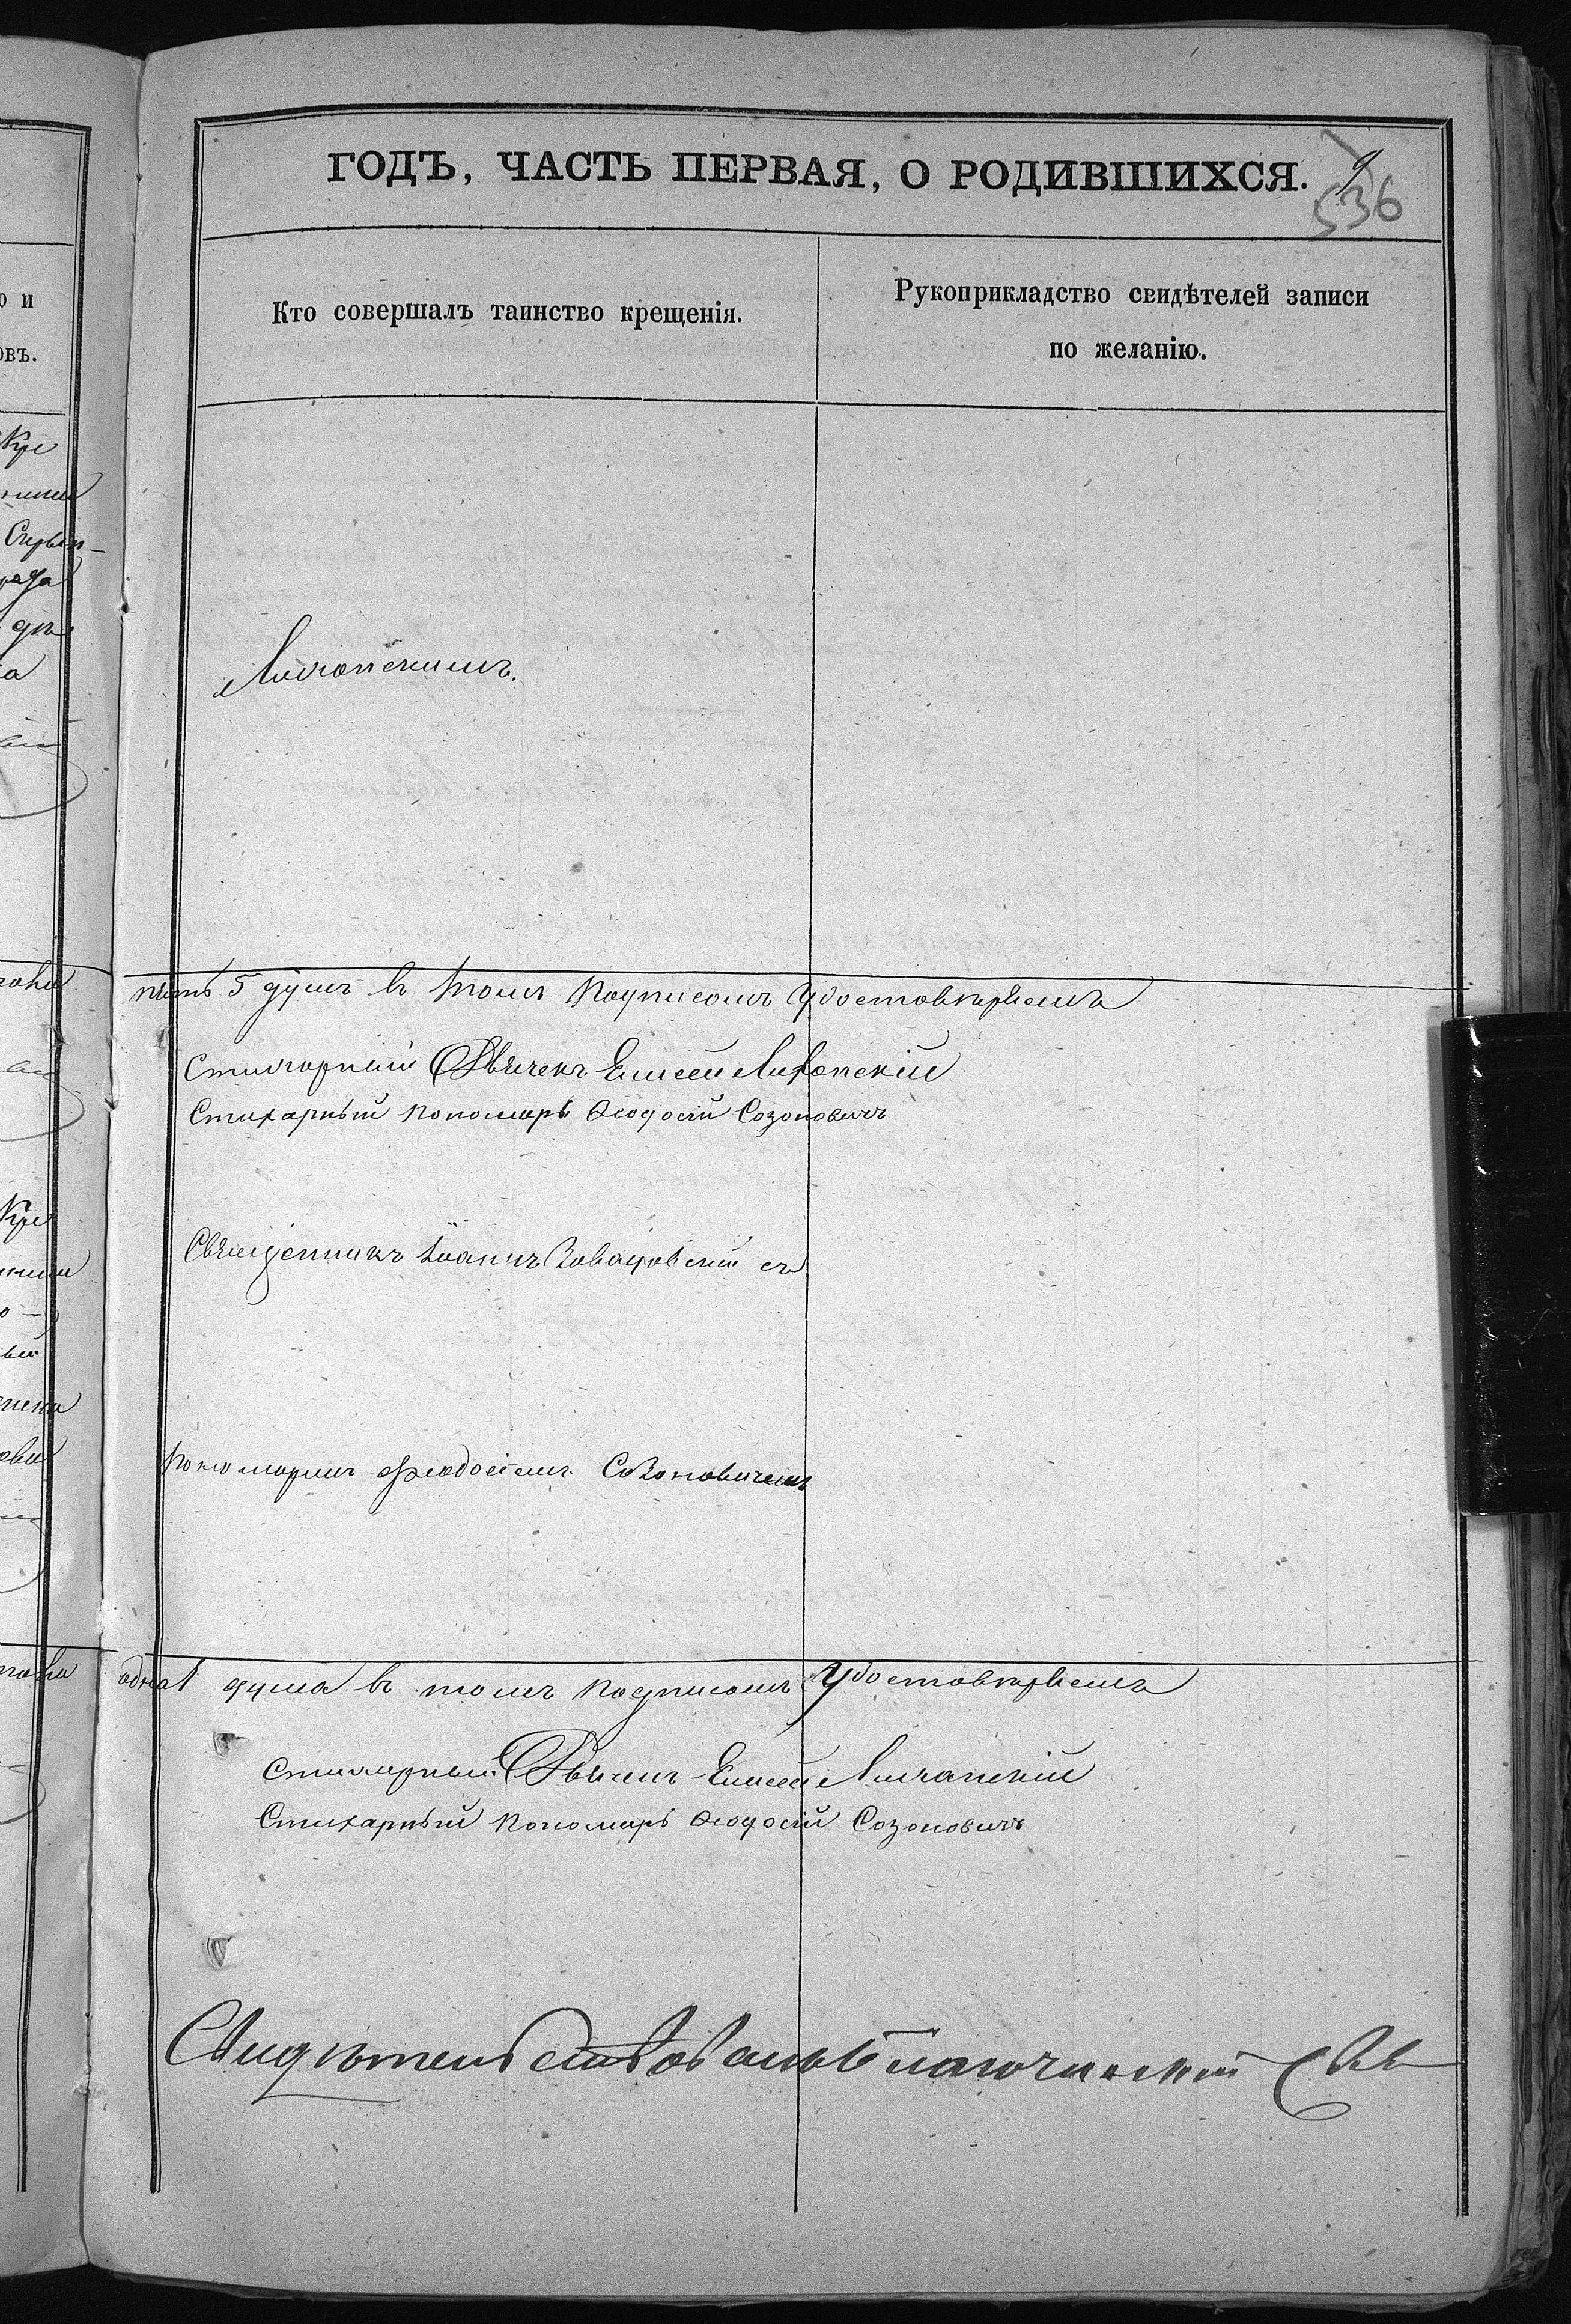 ГОДЪ, ЧАСТЬ ПЕРВАЯ, О РОДИВШИХСЯ.
9
536
Кто совершалъ таинство крещенія.
Рукоприкладство свидѣтелей записи
по желанію.
о и
овъ.
Лихопскимъ.
пять 5 душъ въ томъ подписомъ удостовѣряемъ
Стихарный Дьячекъ Елисей Лихопскій
Стихарный пономарь Ѳеодосій Созоновичъ
Священникъ Іоаннъ съ
пономаремъ Феодосіемъ Созоновичемъ
одна 1 душа въ томъ подписомъ удостовѣряемъ
Стихарный Дьячекъ Елисей
Стихарный пономарь Ѳеодосій Созоновичъ
Свидѣтельствовалъ Благочинный